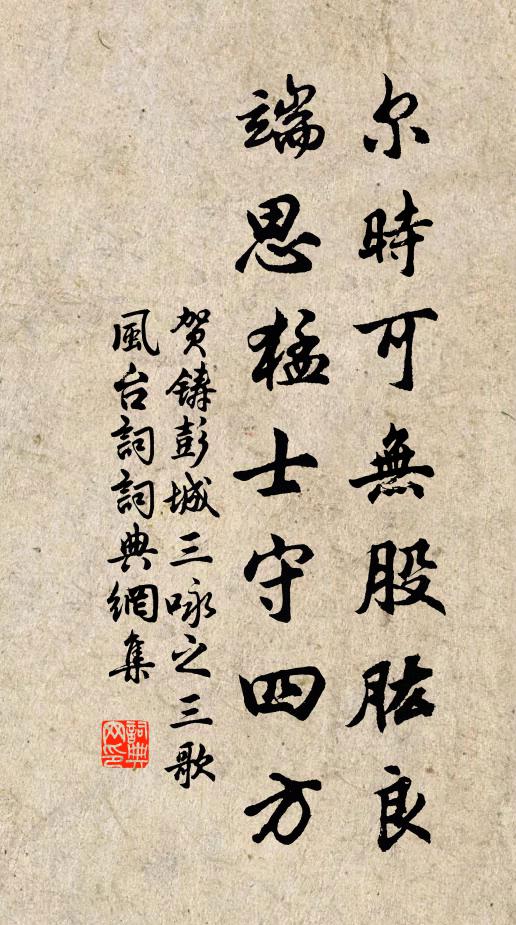 尔時可無股肱良
端思猛士守四方
賀鑄彭城三咏之三歌
風台詞詞典網集
詞典網印